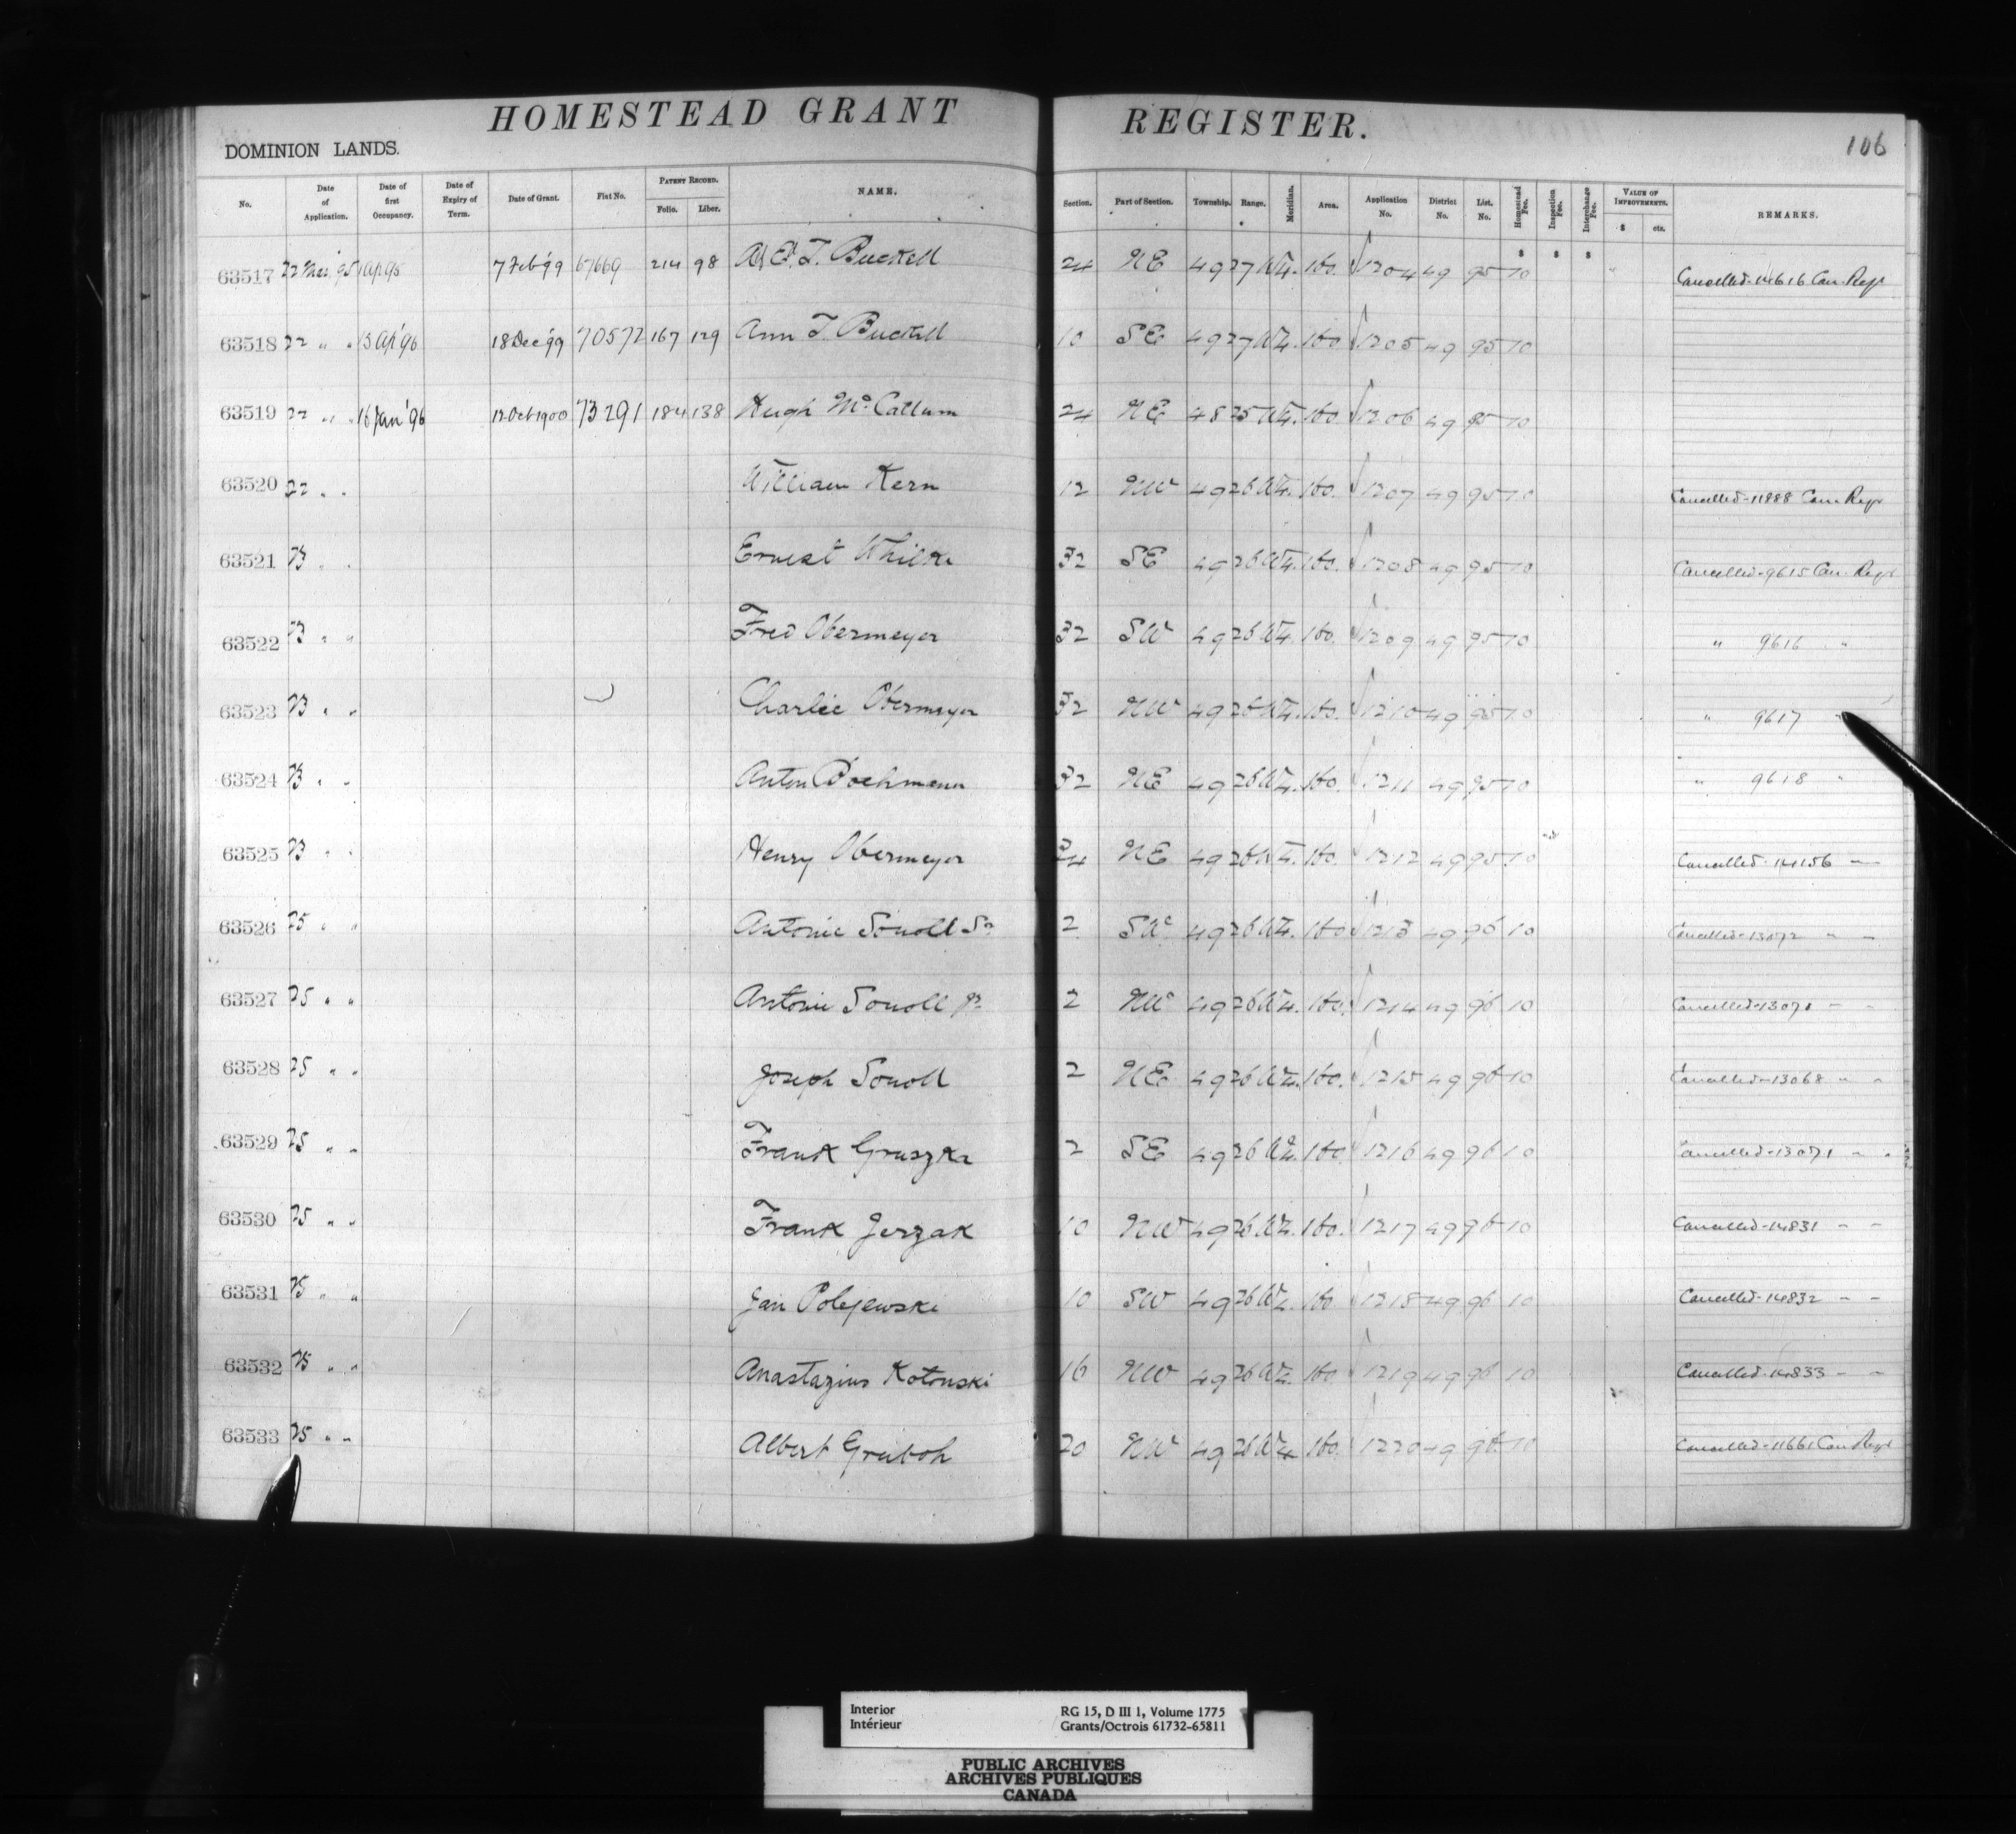 HOMESTEAD GRANT REGISTER.
106
DOMINION LANDS.
No. Date of Application. Date of first Occupancy. Date of Expiry of Term. Date of Grant. Fiat No. PATENT RECORD. Folio. Liber. NAME. Section. Part of Section. Township. Range. Meridian. Area. Application No. District No. List. No. Homestead Fee. Inspection Fee. Interchange Fee. VALUE OF IMPROVEMENTS. $ cts. REMARKS.
$ $ $
63517 22 Mar. '95 1 Ap 95 7 Feb '99 67669 214 98 A. E. T. Bucknell 24 NE 49 27 W4. 160. 1204 49 95 10 Cancelled-14616 Can. Regr
63518 22 " " 13 Ap '96 18 Dec '99 70572 167 129 Ann T. Bucknell 10 SE 49 27 W4. 160 1205 49 95 10
63519 22 " " 16 Jan '96 12 Oct 1900 73291 184 138 Hugh McCallum 24 NE 48 25 W4. 160. 1206 49 95 10
63520 22 " " William Kern 12 NW 49 26 W4. 160. 1207 49 95 10 Cancelled-11888 Can Regr
63521 23 " " Ernest Whilke 32 SE 49 26 W4. 160. 1208 49 95 10 Cancelled-9615 Can. Regr
63522 23 " " Fred Obermeyer 32 SW 49 26 W4. 160. 1209 49 95 10 " 9616 "
63523 23 " " Charlie Obermeyer 32 NW 49 26 W4. 160. 1210 49 95 10 " 9617 "
63524 23 " " Anton Bochmann 32 NE 49 26 W4. 160. 1211 49 95 10 " 9618 "
63525 23 " " Henry Obermeyer 24 NE 49 26 W4. 160. 1212 49 95 10 Cancelled-14156 "
63526 25 " " Antonie Sonoll Sr 2 SW 49 26 W4. 160 1213 49 96 10 Cancelled-13072 " "
63527 25 " " Antonie Sonoll Jr 2 NW 49 26 W4. 160. 1214 49 96 10 Cancelled-13070 " "
63528 25 " " Joseph Sonoll 2 NE 49 26 W4. 160. 1215 49 96 10 Cancelled-13068 " "
63529 25 " " Frank Gruszke 2 SE 49 26 W4. 160 1216 49 96 10 Cancelled-13071 " "
63530 25 " " Frank Jerzak 10 NW 49 26 W4. 160. 1217 49 96 10 Cancelled-14831 " "
63531 25 " " Jan Polejewske 10 SW 49 26 W4. 160 1218 49 96 10 Cancelled-14832 " "
63532 25 " " Anastazius Kotonski 16 NW 49 26 W4. 160. 1219 49 96 10 Cancelled-14833 " "
63533 25 " " Albert Gruboh 20 NW 49 26 W4 160. 1220 49 96 10 Cancelled-11661 Can Regr
Interior RG 15, D III 1, Volume 1775
Intérieur Grants/Octrois 61732-65811
PUBLIC ARCHIVES
ARCHIVES PUBLIQUES
CANADA